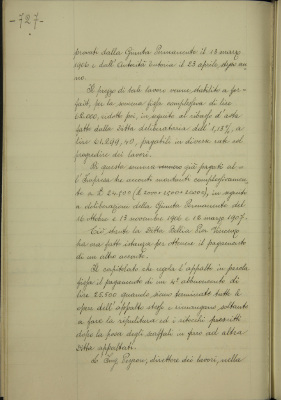 -727-
provati dalla Giunta Permanente il 12 marzo
1906 e dall'Autorità tutoria il 23 aprile, dopo an-
no.
Il prezzo di tale lavoro venne stabilito a for-
fait, per la somma fissa complessiva di lire
62.000, ridotto poi, in seguito al ribasso d'asta
fatto dalla Ditta deliberataria dell'1,13%, a
lire 61.299,40, pagabili in diverse rate col
progredire dei lavori.
Di questa somma vennero già pagati al-
l'Impresa tre acconti mandati complessivamen-
te a L. 24.500, in seguito
a deliberazione della Giunta Permanente del
16 ottobre e 13 novembre 1906 e 18 marzo 1907.
Ciò stante la Ditta Pellia Pier Vincenzo
ha ora fatto istanza per ottenere il pagamento
di un altro acconto.
Il capitolato che regola l'appalto in parola
fissa il pagamento di un 4° abbuonconto di
lire 25.500 quando, sono terminate tutte le
opere dell'Appalto stesso e rimangono, soltanto
a farsi la ripulitura ed i ritocchi prescritti
dopo la posa degli scaffali in ferro ad altra
Ditta appaltati.
L'Ing. direttore dei lavori, nella